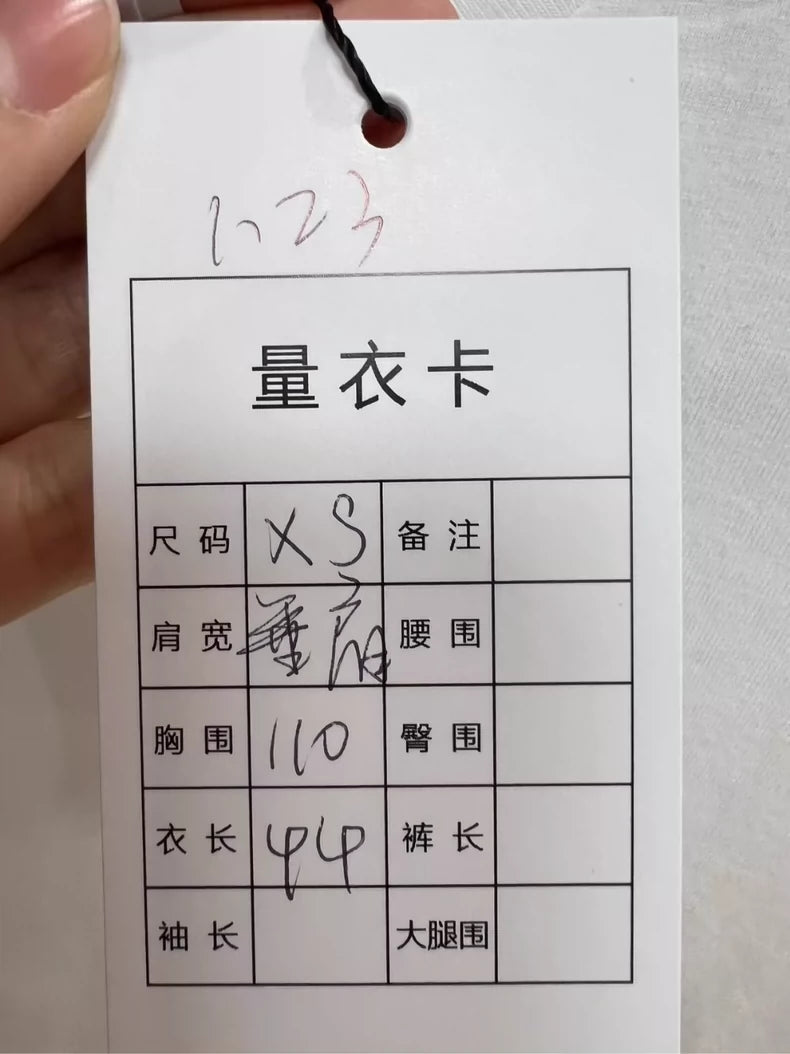 1.23
量衣卡
尺码 XS 备注
肩宽 垂肩 腰围
胸围 110 臀围
衣长 44 裤长
袖长 大腿围